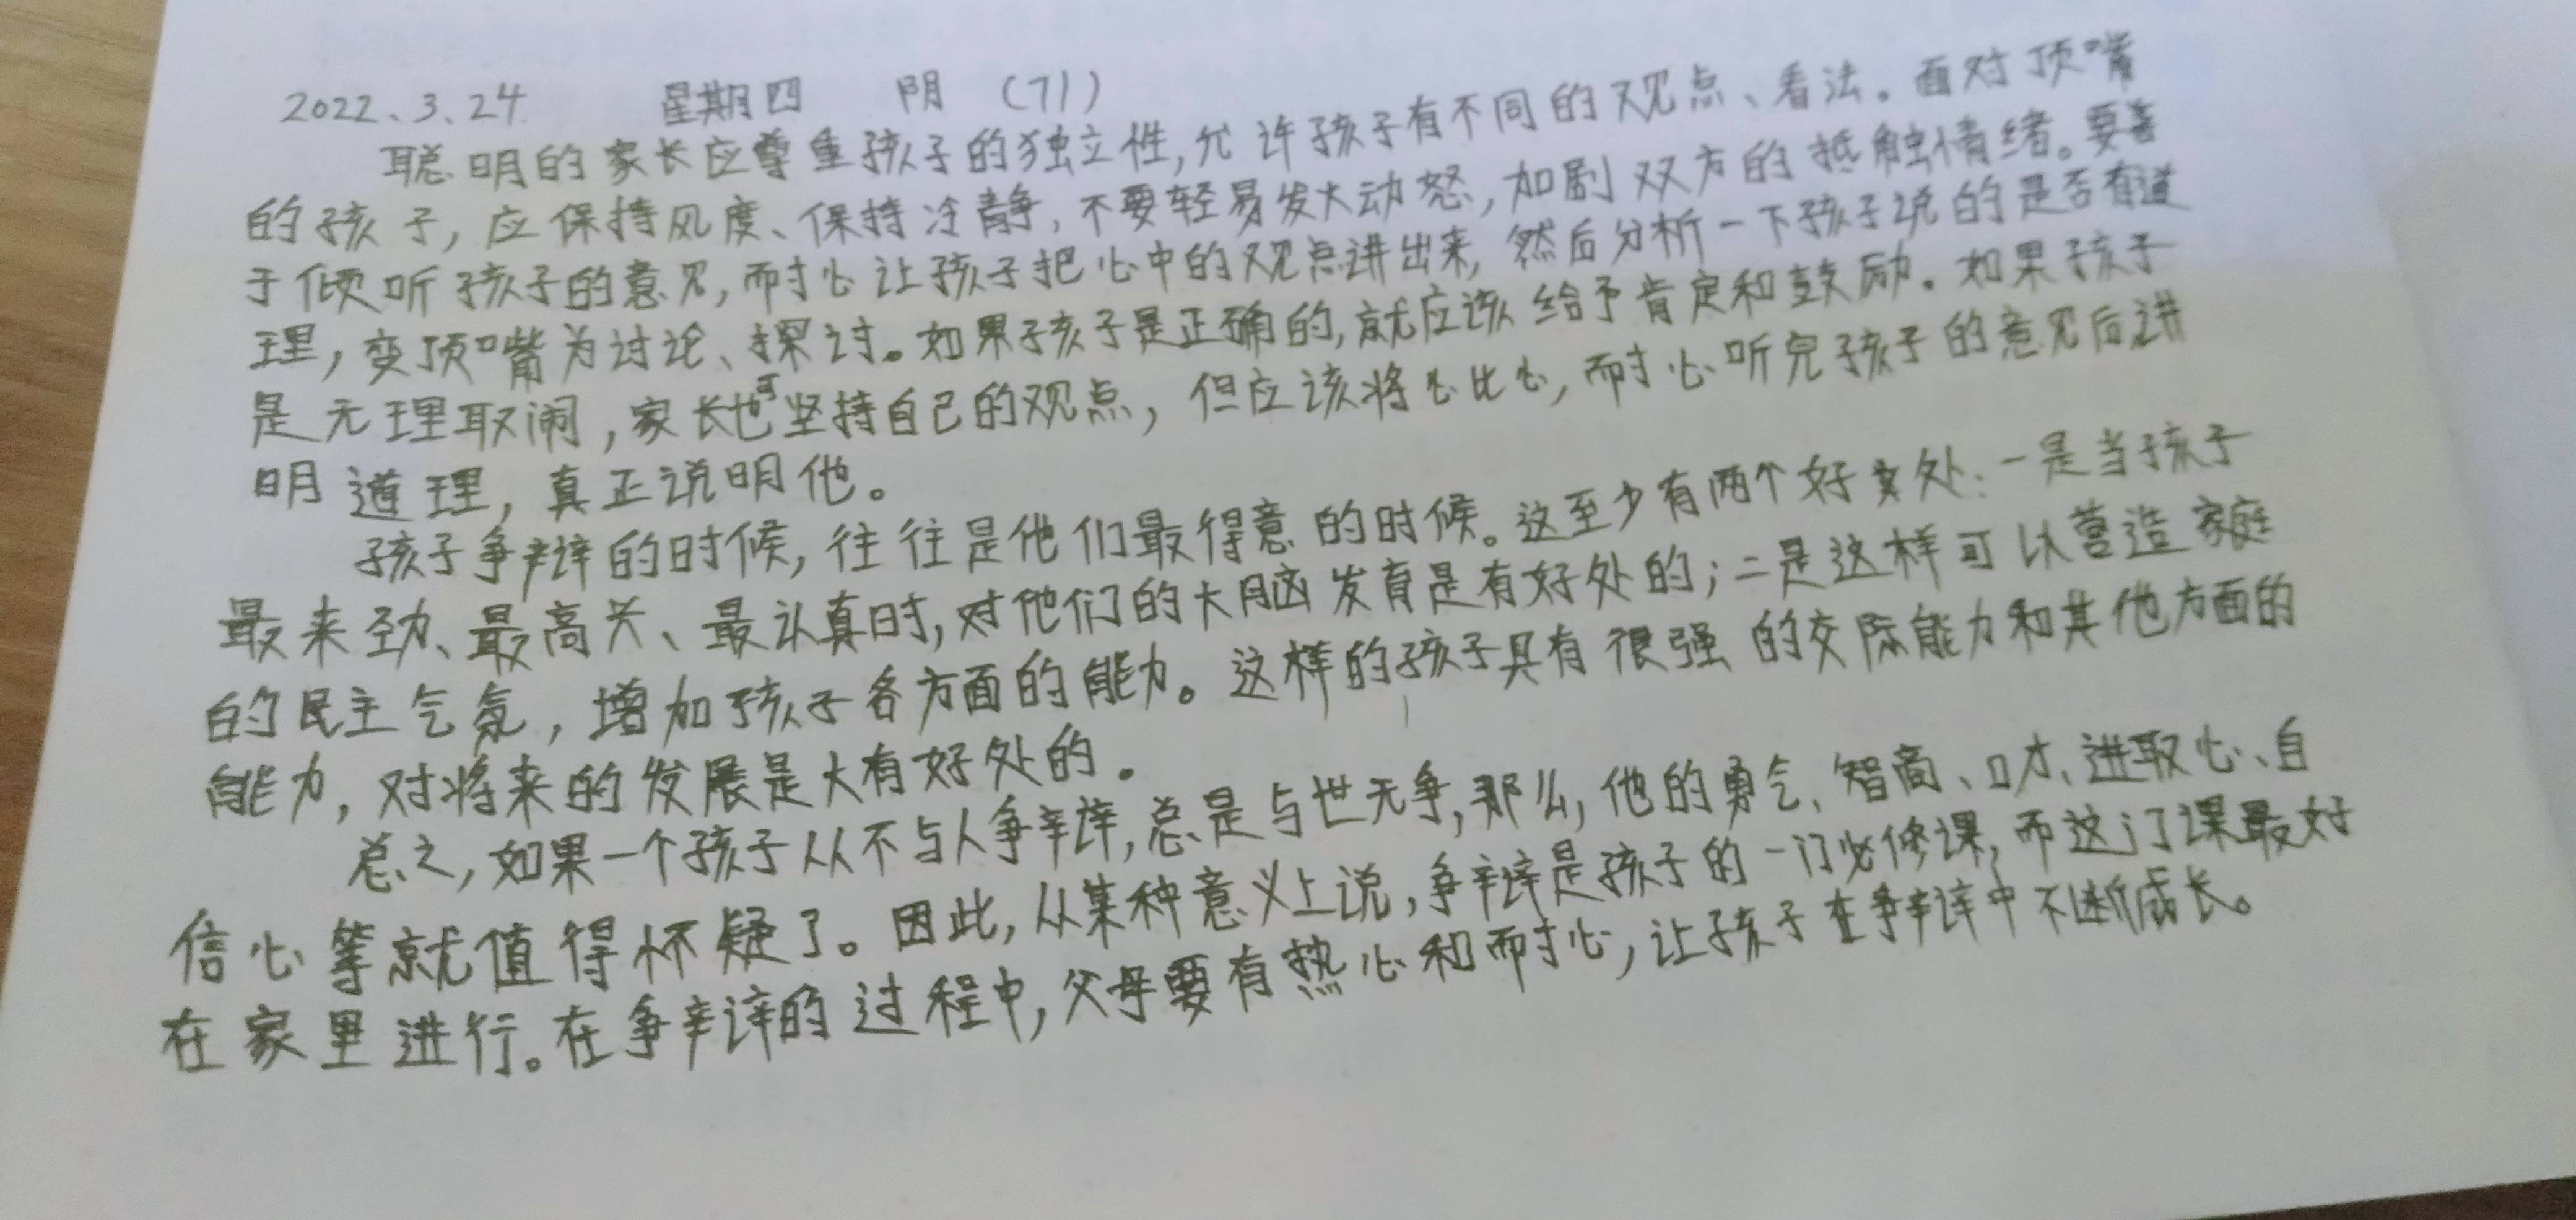 2022.3.24. 星期四 阴 (71)
聪明的家长应尊重孩子的独立性,允许孩子有不同的观点、看法。面对顶嘴
的孩子,应保持风度、保持冷静,不要轻易发火动怒,加剧双方的抵触情绪。要善
于倾听孩子的意见,耐心让孩子把心中的观点讲出来,然后分析一下孩子说的是否有道
理,变顶嘴为讨论、探讨。如果孩子是正确的,就应该给予肯定和鼓励。如果孩子
是无理取闹,家长也可坚持自己的观点,但应该将心比心,耐心听完孩子的意见后讲
明道理,真正说明他。
孩子争辩的时候,往往是他们最得意的时候。这至少有两个好处:一是当孩子
最来劲、最高兴、最认真时,对他们的大脑发育是有好处的;二是这样可以营造家庭
的民主气氛,增加孩子各方面的能力。这样的孩子具有很强的交际能力和其他方面的
能力,对将来的发展是大有好处的。
总之,如果一个孩子从不与人争辩,总是与世无争,那么,他的勇气、智商、口才、进取心、自
信心等就值得怀疑了。因此,从某种意义上说,争辩是孩子的一门必修课,而这门课最好
在家里进行。在争辩的过程中,父母要有热心和耐心,让孩子在争辩中不断成长。